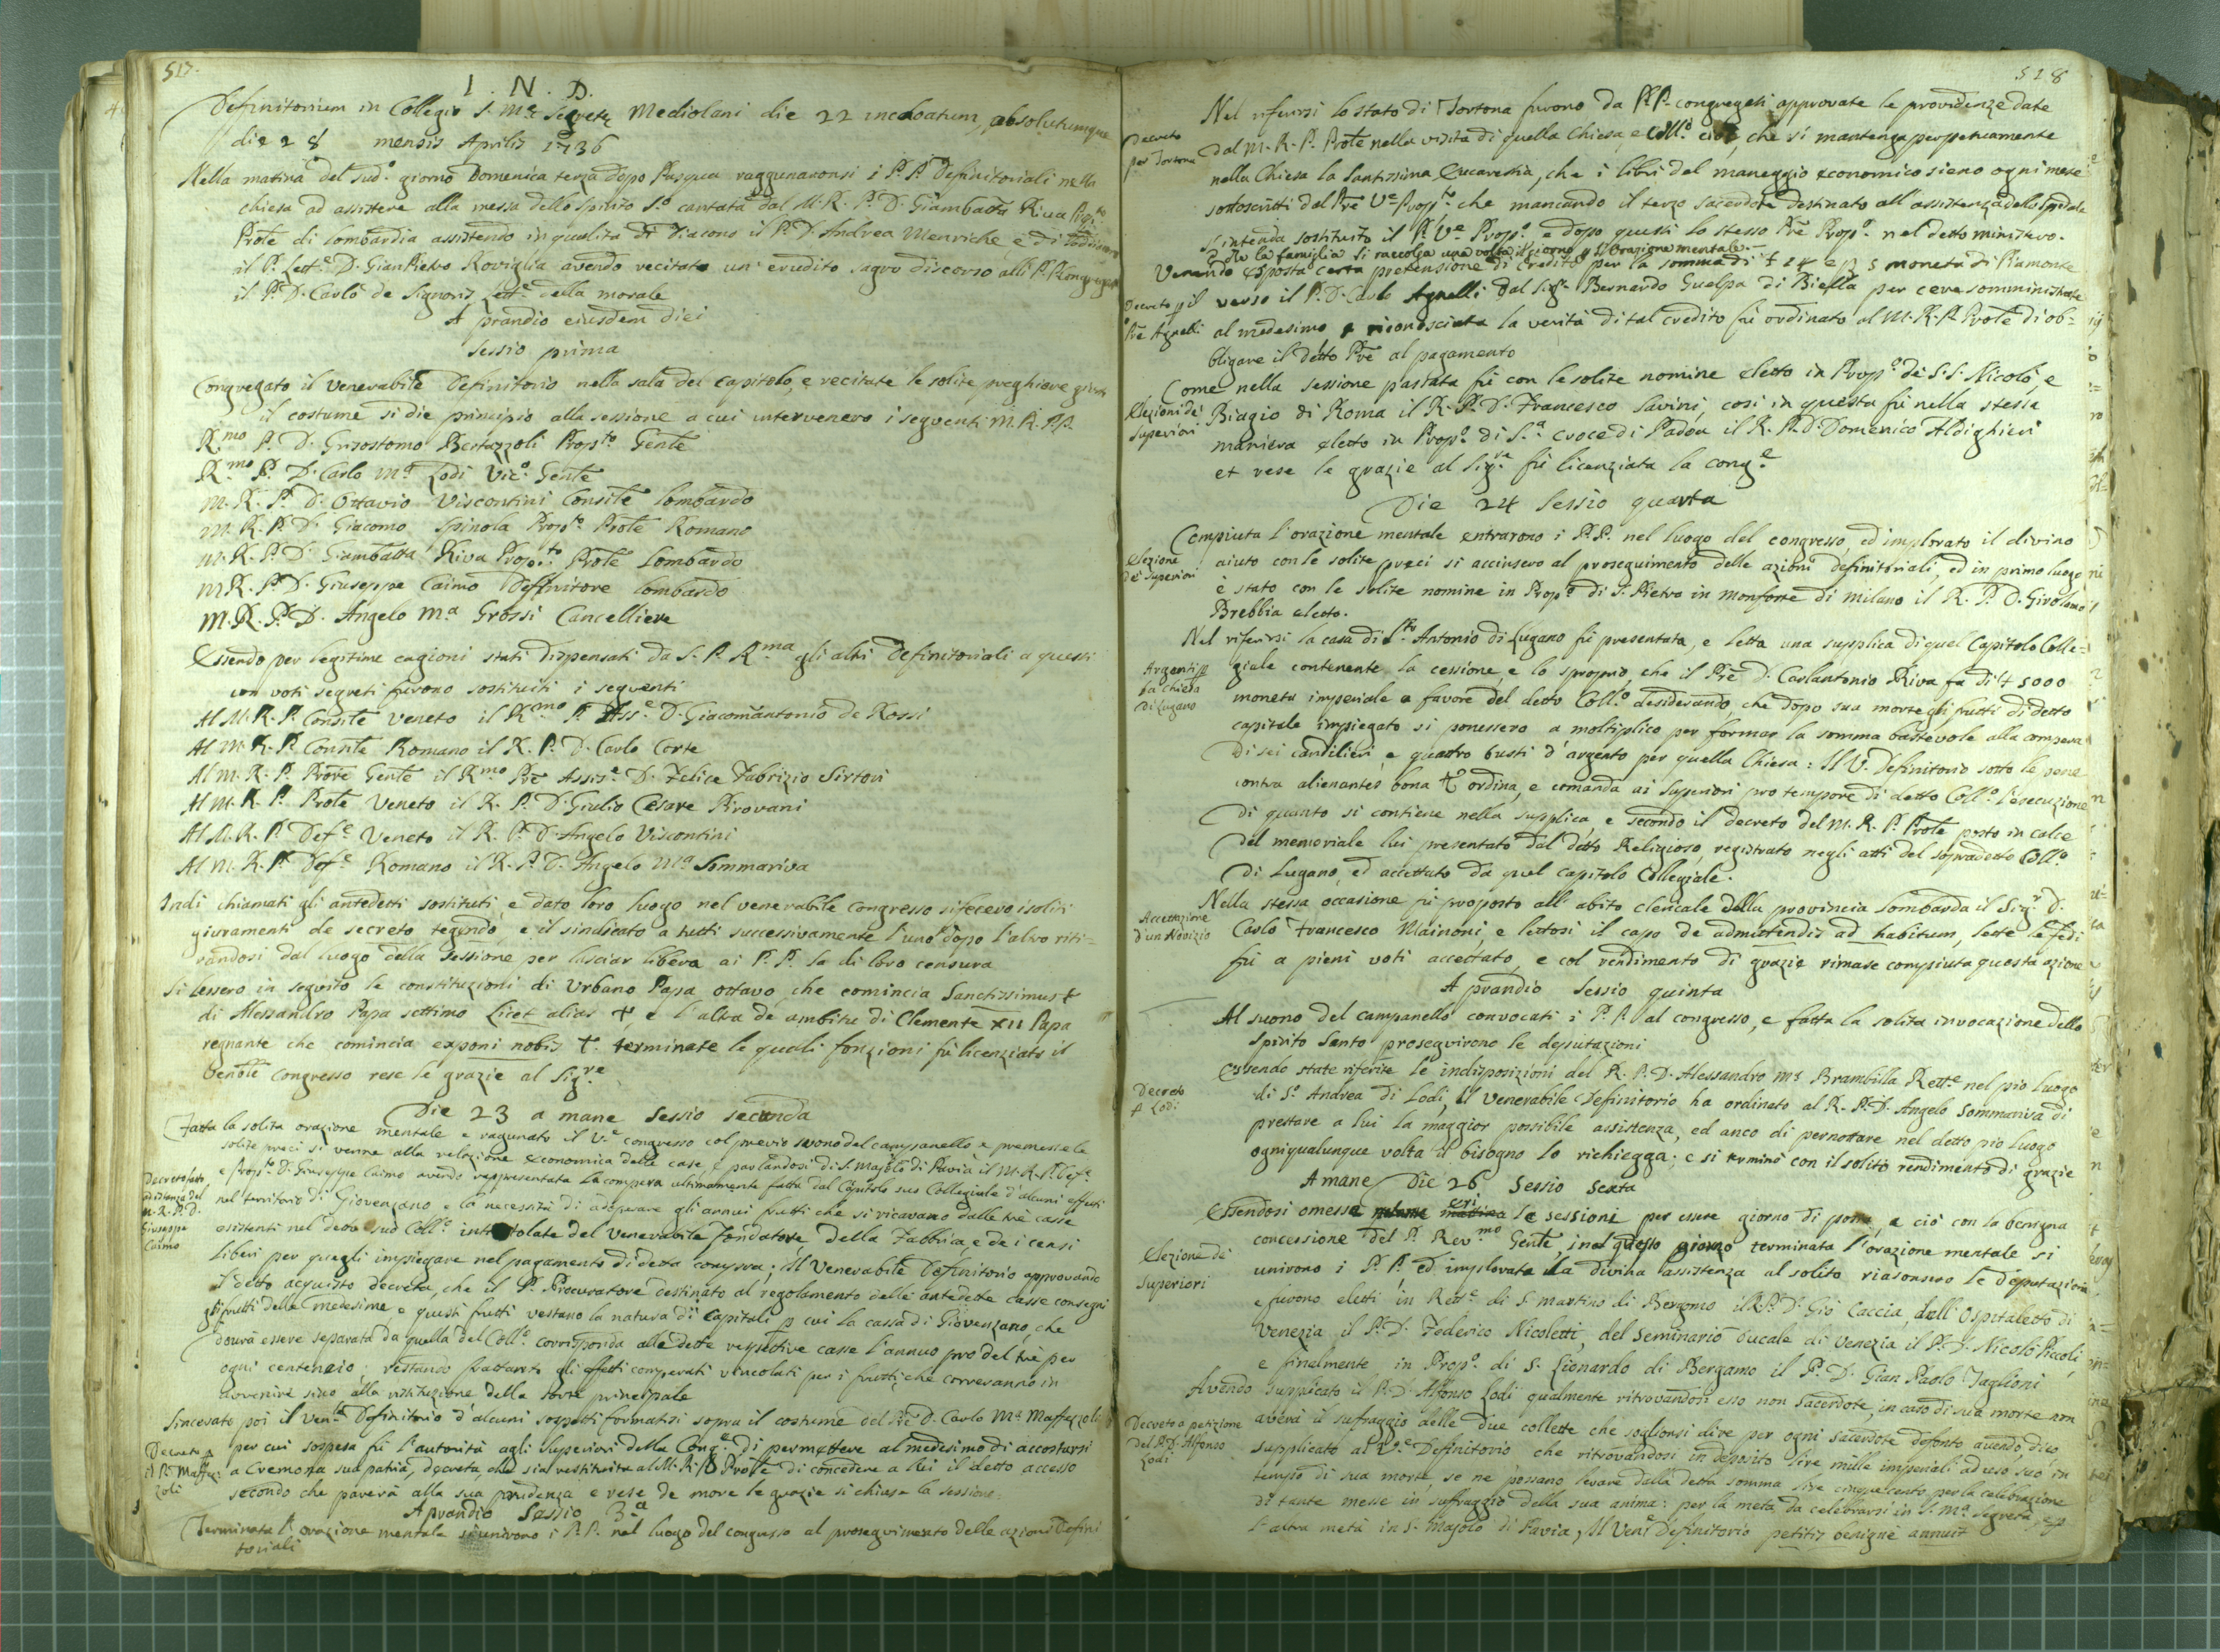 517.
I. N. D.
Definitorium in Collegio S. Mᵉ Secretę Mediolani die 22 incoatum, absolutumque
die 28 mensis Aprilis 1736
Nella matina del sudº. giorno Domenica terza dopo Pasqua raggunaronsi i P.P. Definitoriali nella
chiesa ad assistere alla messa dello Spirito Sº cantata dal M. R. P. D. Giambatta Riva
Prõle di Lombardia assistendo in qualità di Diacono il P. D. Andrea Menriche, e di
il P. Lettᵉ. D. GianPietro Roviglia avendo recitato un' erudito sagro discorso alli P.P. Congregati
il P. D. Carlo de Signoris Lettᵉ. della morale
A prandio eiusdem diei
Sessio prima
Congregato il venerabile Definitorio nella sala del Capitolo, e recitate le solite preghiere giusta
il costume si diè principio alla sessione a cui intervenero i seguenti M. R. PP.
R.mo P. D. Grisostomo Bertazzoli Prop.to Gen̄le
R.mo P. D. Carlo Mª Lodi Vicº. Gen̄le
M. R. P. D. Ottavio Viscontini Consile Lombardo
M. R. P. D. Giacomo Spinola Prop.to Prõle Romano
M. R. P. D. Giambatta Riva Prop.to Prõle Lombardo
M R. P. D. Giuseppe Caimo Deffinitore Lombardo
M. R. P. D. Angelo Mª Grossi Cancelliere
Essendo per legitime cagioni stati dispensati da S. P. R.ma gli altri Definitoriali a questi
con voti segreti furono sostituiti i seguenti
Al M. R. P. Consile Veneto il R.mo P. Assᵉ. D. Giacomantonio de Rossi
Al M. R. P. Consile Romano il R. P. D. Carlo Corte
Al M. R. P. Prore Gen̄le il R.mo Prē Assisᵉ. D. Felice Fabrizio Sirtori
Al M. R. P. Prõle Veneto il R. P. D. Giulio Cesare Pirovani
Al M. R. P. Defᵉ. Veneto il R. P. D. Angelo Viscontini
Al M. R. P. Defᵉ. Romano il R. P. D. Angelo Mª Sommariva
Indi chiamati gli antedetti sostituti, e dato loro luogo nel venerabile congresso si fecero i soliti
giuramenti de secreto tegendo, e il sindicato a tutti successivamente l'uno dopo l'altro riti=
randosi dal luogo della Sessione per lasciar libera ai P. P. la di loro censura
Si lessero in seguito le constituzioni di Urbano Papa ottavo, che comincia Sanctissimus &
di Alessandro Papa settimo Licet alias &, e l'altra de ambitu di Clemente XII Papa
regnante che comincia exponi nobis &. terminate le quali fonzioni fù licenziato il
Ven̄ble congresso rese le grazie al Sig.re
Die 23 a mane Sessio secunda
Fatta la solita orazione mentale e ragunato il Vᵉ. congresso col previo suono del campanello, e premesse le
solite preci si venne alla relazione economica delle case, e parlandosi di S. Majolo di Pavia il M. R. P. Defᵉ.
e Prop.to D. Giuseppe Caimo avendo rappresentata la compera ultimamente fatta dal Capitolo suo Collegiale d'alcuni effetti
Decreto fatto
ad istanza del
M. R. P. D.
Giuseppe
Caimo
nel territorio di Giovenzano, e la necessità di adoperare gli annui frutti che si ricavano dalle trè casse
esistenti nel detto suo Collº. intitolate del venerabile fondatore della Fabbrica, e de i censi
liberi per quegli impiegare nel pagamento di detta compra; Il Venerabile Definitorio approvando
il detto acquisto decreta, che il P. Procuratore destinato al regolamento delle antedette casse consegni
gli frutti delle medesime, e questi frutti vestano la natura di capitali p cui la cassa di Giovenzano, che
dourà essere separata da quella del Collº. corrisponda alle dette respettive casse l'annuo pro del trè per
ogni centenaio: restando frattanto gli effetti comperati vincolati per i frutti, che correranno in
avvenire sino alla restituzione della sorte principale
Sincerato poi il Venᵉ Definitorio d'alcuni sospetti formatisi sopra il costume del Prē D. Carlo Mª Maffezzoli
Decreto p
il P. Maffez
zoli
per cui sospesa fù l'autorità agli Superiori della Congᵉ. di permettere al medesimo di accostarsi
a Cremona sua patria, decreta, che sia restituita al M. R. P. Prõle di concedere a lui il detto accesso
secondo che parerà alla sua prudenza e rese de more le grazie si chiuse la sessione.
A prandio Sessio 3.ª
Terminata l'orazione mentale si unirono i P. P. nel luogo del congresso al proseguimento delle azioni Defini
toriali
518
Nel riferirsi lo stato di Tortona furono da P.P. congregati approvate le providenze date
Decreto
per Tortona
dal M. R. P. Prõle nella visita di quella Chiesa, e Collº. cioè, che si mantenga perpetuamente
nella Chiesa la Santissima Eucarestia, che i libri del maneggio economico sieno ogni mese
sottoscritti dal Prē Vᵉ Prop.to che mancando il terzo sacerdote destinato all'assistenza dello Spedale
s'intenda sostituito il P. Vᵉ Propº. dopo questi lo stesso Prē Propº. nel detto ministero.
e che la famiglia si raccolga una volta il giorno p l'Orazione mentale.
Venendo esposta certa pretensione di credito per la somma di £ 14 e s 5 moneta di Piamonte
Decreto p il
Prē Agnelli
verso il P. D. Carlo Agnelli dal Sigr. Bernardo Guelpa di Biella per cere somministrate
al medesimo, e riconosciuta la verità di tal credito fù ordinato al M. R. P. Prõle di ob=
bligare il detto Prē al pagamento
Come nella sessione passata fù con le solite nomine eletto in Propº. de SS. Nicolò, e
Elezioni de
Superiori
Biagio di Roma il R. P. D. Francesco Savini, così in questa fù nella stessa
maniera eletto in Propº. di S.ª Croce di Padoa il R. P. D. Domenico Aldighieri
et rese le grazie al Sig.re fù licenziata la congᵉ.
Die 24 Sessio quarta
Compiuta l'orazione mentale entrarono i P. P. nel luogo del congresso, ed implorato il divino
Elezione
de Superiori
aiuto con le solite preci si accinsero al proseguimento delle azioni definitoriali, ed in primo luogo
è stato con le solite nomine in Propº. di S. Pietro in Monforte di Milano il R. P. D. Girolamo
Brebbia eletto.
Nel riferirsi la casa di S.to Antonio di Lugano fù presentata, e letta una supplica di quel Capitolo Colle=
Argenti p
la chiesa
di Lugano
giale contenente la cessione, e lo sproprio, che il Prē D. Carlantonio Riva fa di £ 5000
moneta imperiale a favore del detto Collº. desiderando, che dopo sua morte gli frutti di detto
capitale impiegato si ponessero a moltiplico per formar la somma bastevole alla compera
di sei candilieri, e quattro busti d'argento per quella Chiesa: Il V. Definitorio sotto le pene
contra alienantes bona & ordina, e comanda ai Superiori pro tempore di detto Collº. l'esecuzione
di quanto si contiene nella supplica e secondo il decreto del M. R. P. Prõle posto in calce
del memoriale lui presentato dal detto Religioso, registrato negli atti del sopradetto Collº
di Lugano, ed accettato da quel Capitolo Collegiale.
Nella stessa occasione fù proposto all'abito clericale della provincia Lombarda il Sigr. D.
Accettazione
d'un Novizio
Carlo Francesco Mainoni, e lettosi il capo de admittendis ad habitum, lette le fedi
fù a pieni voti accettato, e col rendimento di grazie rimase compiuta questa azione
A prandio Sessio quinta
Al suono del campanello convocati i P. P. al congresso, e fatta la solita invocazione dello
Spirito Santo proseguirono le deputazioni
Essendo state riferite le indisposizioni del R. P. D. Alessandro Mª Brambilla Rettᵉ. nel pio luogo
Decreto
p Lodi
di Sº. Andrea di Lodi, il Venerabile Definitorio ha ordinato al R. P. D. Angelo Sommariva di
prestare a lui la maggior possibile assistenza, ed anco di pernottare nel detto pio luogo
ogniqualunque volta il bisogno lo richiegga; e si terminò con il solito rendimento di grazie
A mane Die 26 Sessio Sexta
Essendosi omesse ieri le sessioni per essere giorno di posta, e ciò con la benigna
concessione del P. Rev.mo Gen̄le, in questo giorno terminata l'orazione mentale si
Elezione de
Superiori
unirono i P. P. ed implorata la divina assistenza al solito riasonsero le deputazioni
e furono eletti in Rettᵉ. di S. Martino di Bergomo il R. P. D. Giò Caccia, dell'Ospitaletto di
Venezia il P. D. Federico Nicoletti, del Seminario Ducale di Venezia il P. D. Nicolò Piccoli,
e finalmente, in Propº. di S. Lionardo di Bergamo il P. D. Gian Paolo Taglioni
Avendo supplicato il P. D. Alfonso Lodi qualmente ritrovandosi esso non sacerdote, in caso di sua morte non
Decreto a petizione
del P. D. Alfonso
Lodi
averà il sufraggio delle due collette che soglionsi dire per ogni sacerdote defonto avendo, dico
supplicato al Vᵉ. Definitorio che ritrovandosi in deposito lire mille imperiali ad uso suo in
tempo di sua morte, se ne possano levare dalla detta somma lire cinquecento per la celebrazione
di tante mese in suffraggio della sua anima: per la metà da celebrarsi in S. Mª Segreta, e p
l'altra metà in S. Majolo di Pavia, Il Venᵉ Definitorio petitis benigne annuit